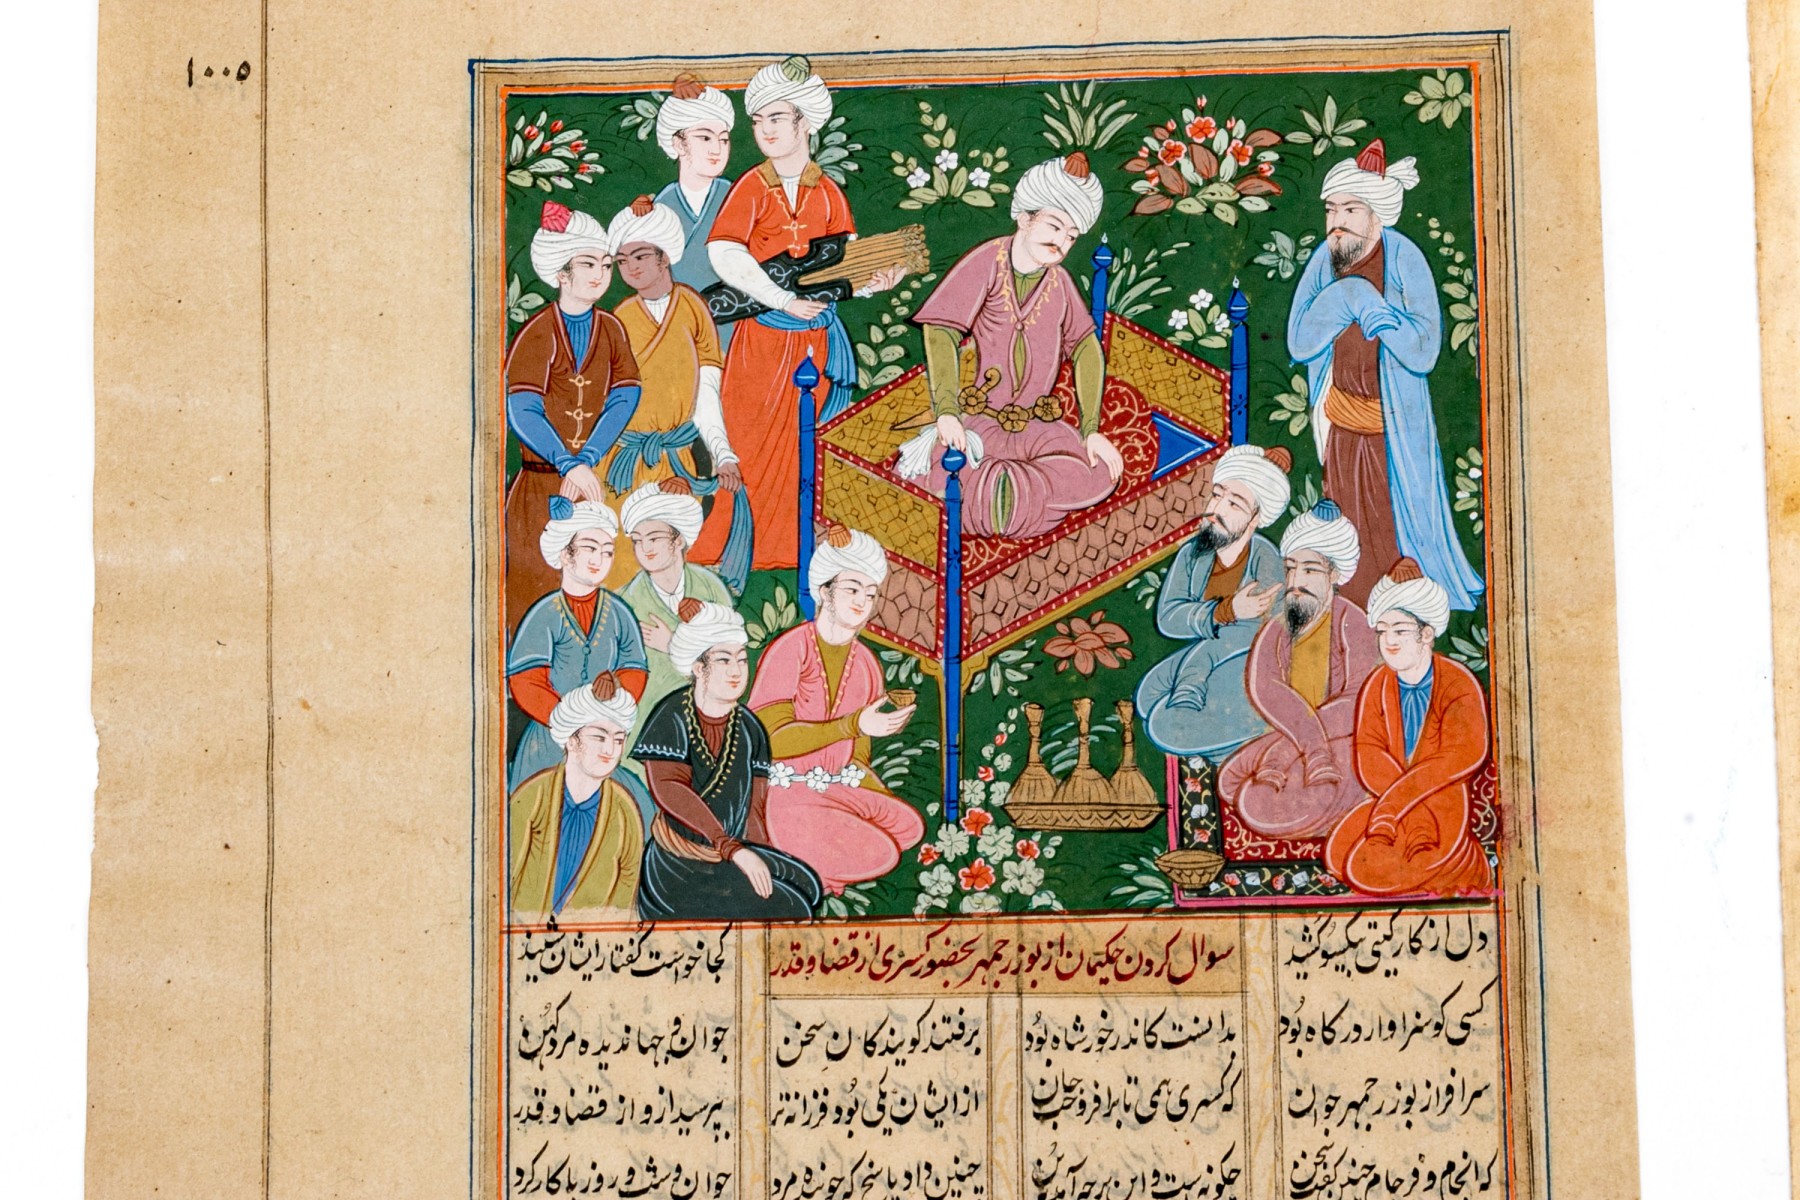 ۱۰۰۵
دل از کار گیتی بیکسو کشید سوال کردن حکیمان از بوزرجمهر بحضور کسری از قضا و قدر کجا خواست گفتار ایشان شنید
کسی کو سزاوار درگاه بود بدانست کاندر خور شاه بود برفتند گویندگان سخن جوان و جهاندیده مرد کهن
سرافراز بوزرجمهر جوان که کسری همی تا برافروخت جان ازیشان یکی بود فرزانه تر بپرسید ازو از قضا و قدر
که انجام و فرجام چنین سخن چگونه ست و این بر چه آید چنین داد پاسخ که جوینده مرد جوان و شب و روز با کار کرد